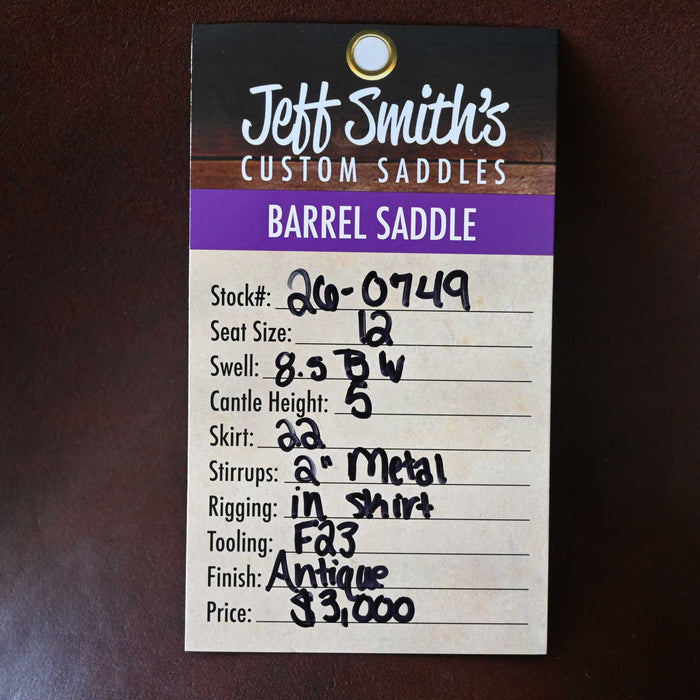 Jeff Smith's
CUSTOM SADDLES
BARREL SADDLE
Stock#: 26-0749
Seat Size: 12
Swell: 8.5 BW
Cantle Height: 5
Skirt: 22
Stirrups: 2" Metal
Rigging: in skirt
Tooling: F23
Finish: Antique
Price: $3,000